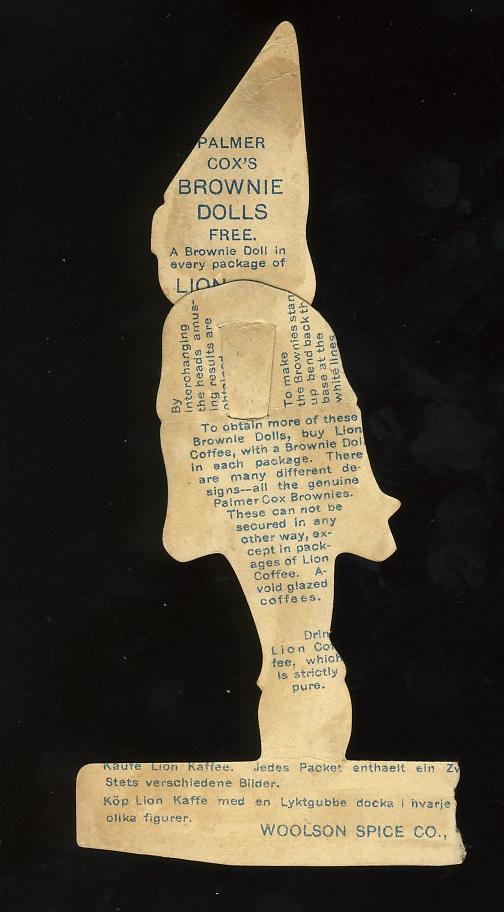 PALMER
COX'S
BROWNIE
DOLLS
FREE.
A Brownie Doll in
every package of
LION
By
interchanging
the heads amus-
ing results are
obtained
To make
the Brownies stan
up bend back th
base at the
white lines
To obtain more of these
Brownie Dolls, buy Lion
Coffee, with a Brownie Dol
in each package. There
are many different de-
signs—all the genuine
Palmer Cox Brownies.
These can not be
secured in any
other way, ex-
cept in pack-
ages of Lion
Coffee. A-
void glazed
coffees.
Drin
Lion Cof
fee, which
is strictly
pure.
Kaufe Lion Kaffee. Jedes Packet enthaelt ein Zw
Stets verschiedene Bilder.
Köp Lion Kaffe med en Lyktgubbe docka i hvarje
olika figurer.
WOOLSON SPICE CO.,